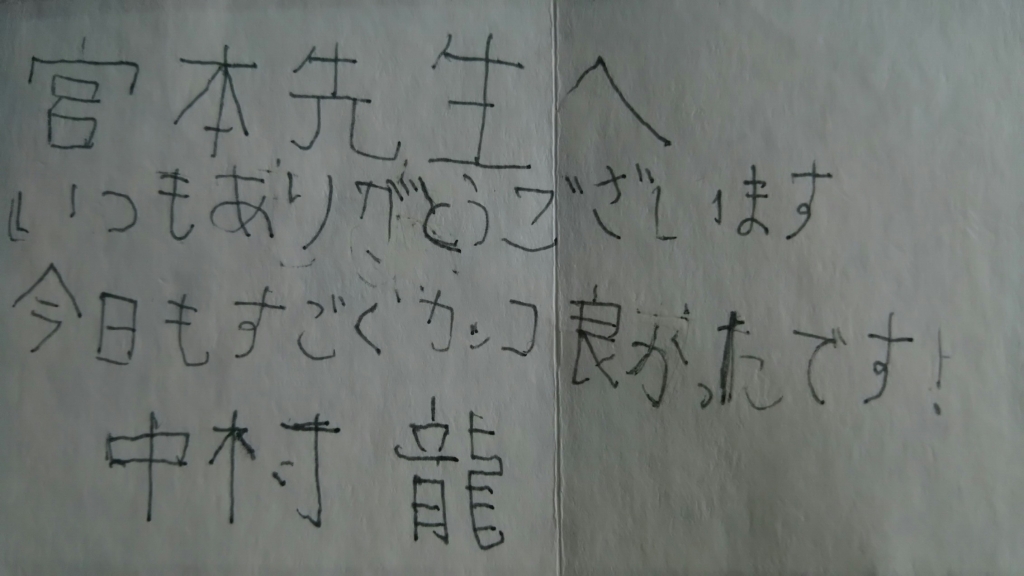 宮本先生へ
いつもありがとうございます
今日もすごくカッコ良かったです!
中村 龍